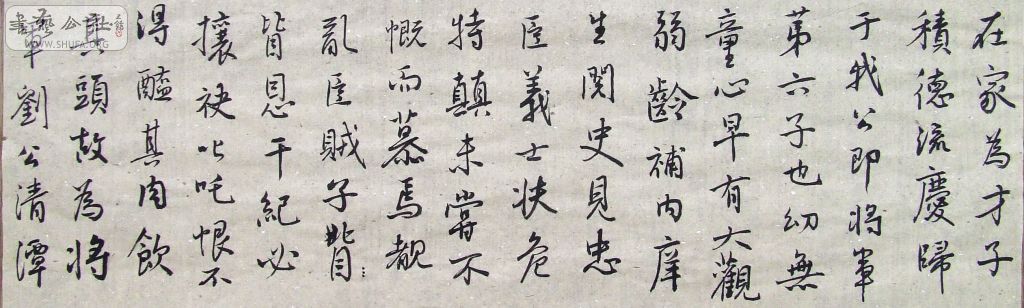 在家為才子
積德流慶歸
于我公即將軍
第六子也幼無
童心早有大觀
弱齡補内庠
生閱史見忠
臣義士扶危
持顛未嘗不
慨而慕焉覩
亂臣賊子背
背恩干紀必
攘袂叱咤恨不
得醢其肉飲
其頭故為將
軍劉公清潭
書藝公社
WWW.SHUFA.ORG